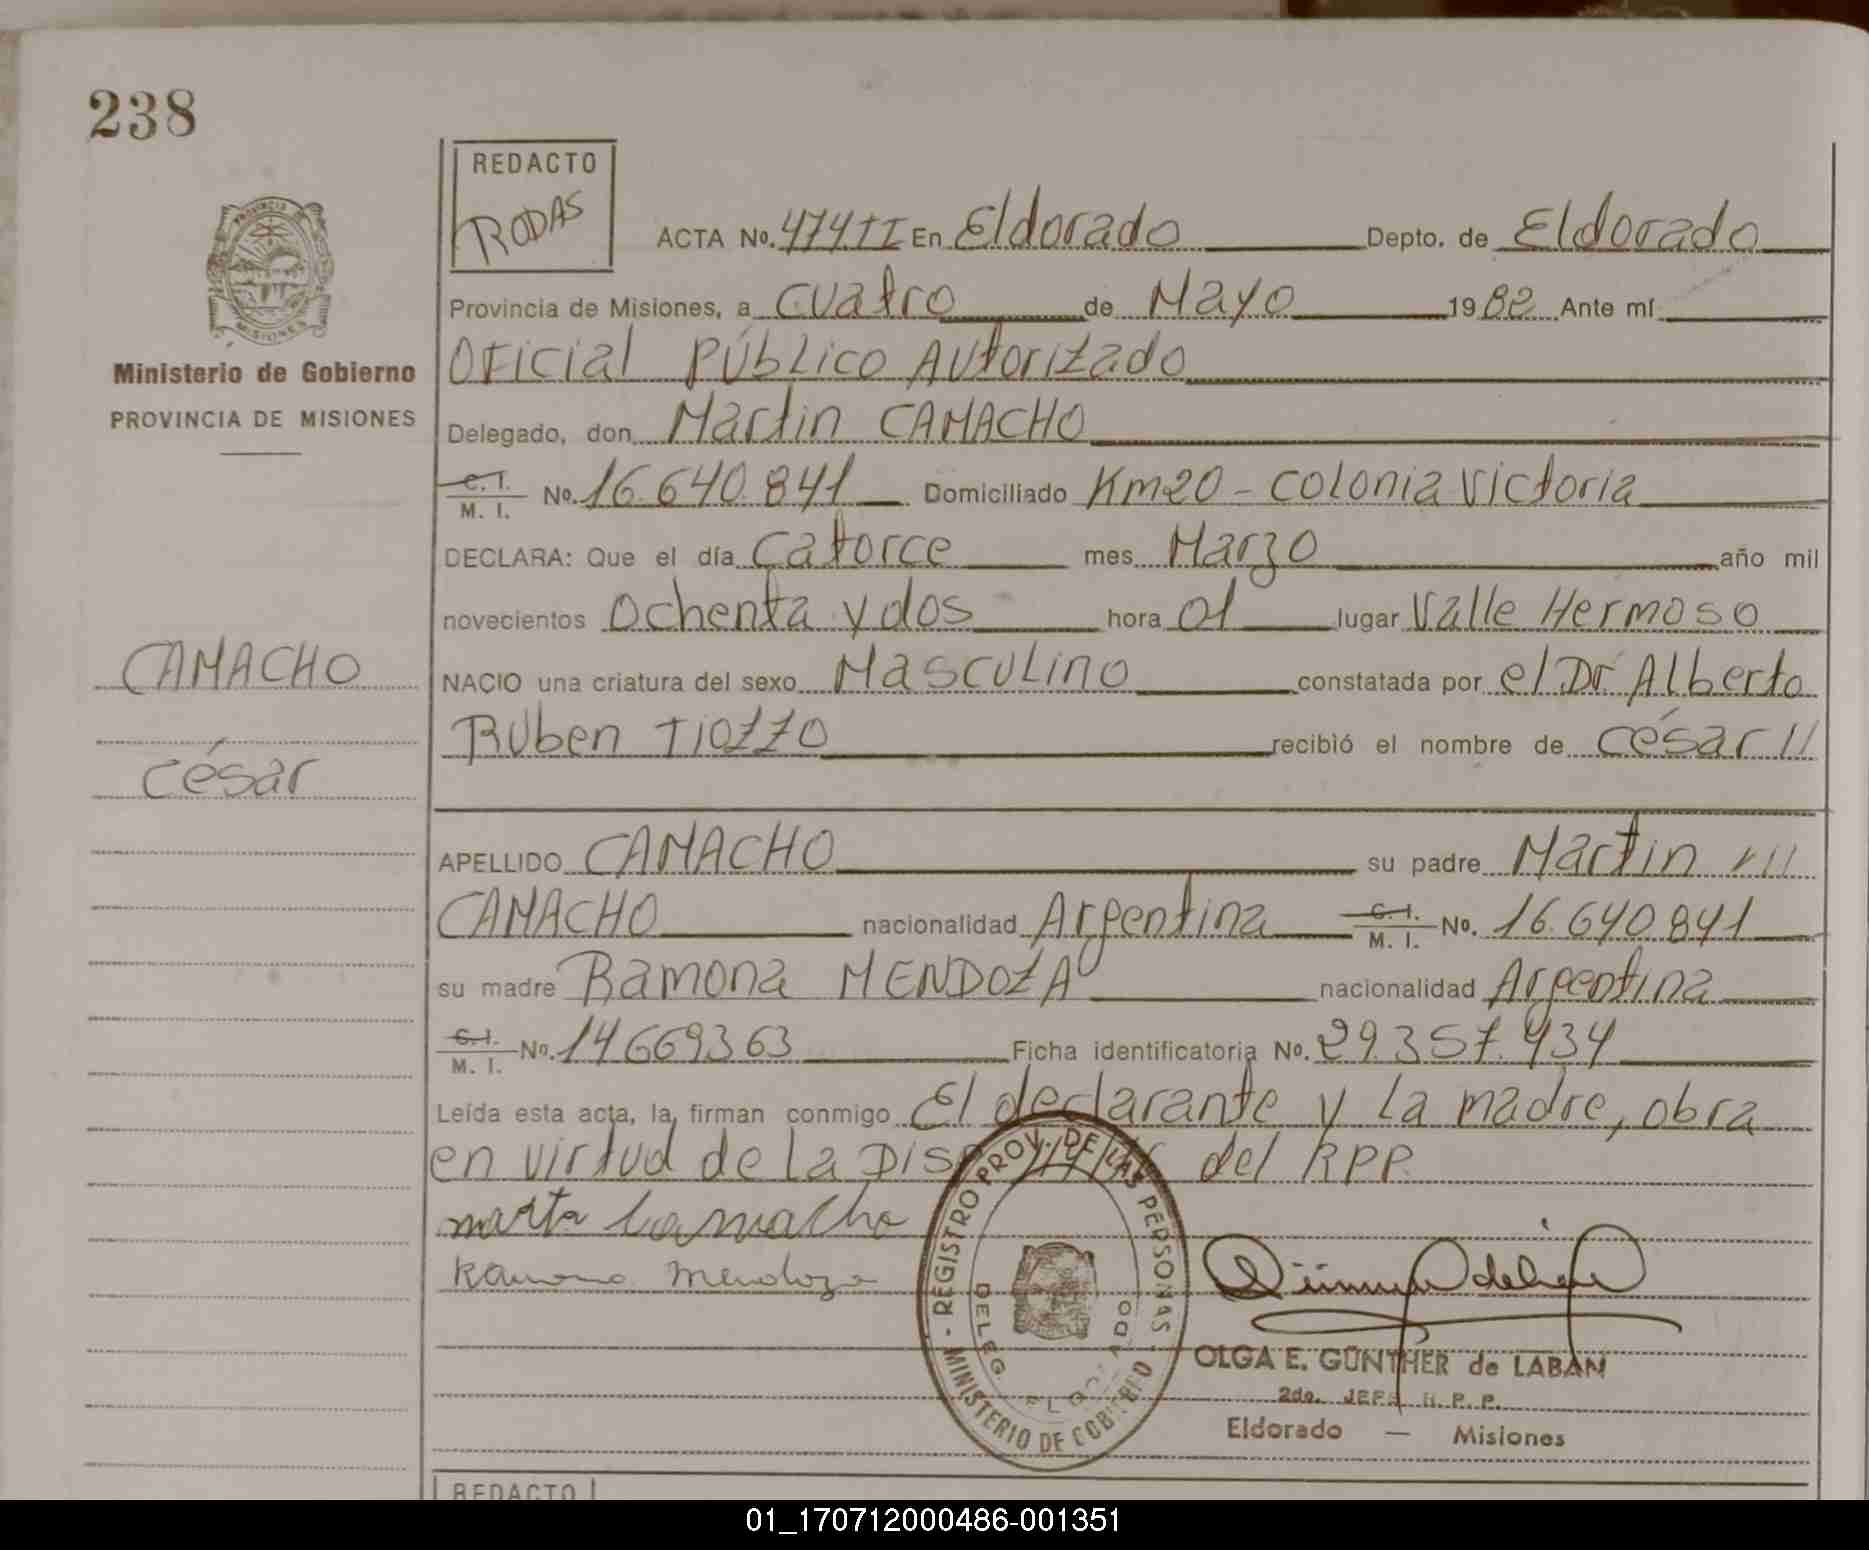 238
REDACTO
RODAS
ACTA No. 474 II En Eldorado Depto. de Eldorado
Provincia de Misiones, a cuatro de Mayo 1982 Ante mí
Oficial Público Autorizado
Delegado, don Martin CAMACHO
C. I. / M. I. No. 16.640.841 Domiciliado Km20 - Colonia Victoria
DECLARA: Que el día catorce mes Marzo año mil
novecientos ochenta y dos hora 01 lugar Valle Hermoso
NACIO una criatura del sexo Masculino constatada por el Dr. Alberto
Ruben TIOZZO recibió el nombre de César //
APELLIDO CAMACHO su padre Martin ///
CAMACHO nacionalidad Argentina C. I. / M. I. No. 16.640.841
su madre Ramona MENDOZA nacionalidad Argentina
C. I. / M. I. No. 14669363 Ficha identificatoria No. 29.357.434
Leída esta acta, la firman conmigo El declarante y la madre, obra
en virtud de la Disp del RPP.
Camacho
Ramona Mendoza
PROVINCIA DE
MISIONES
Ministerio de Gobierno
PROVINCIA DE MISIONES
CAMACHO
César
REGISTRO PROV. DE LAS PERSONAS
MINISTERIO DE GOBIERNO
DELEG. ELDORADO
OLGA E. GÜNTHER de LABAN
2do. JEFE R. P. P.
Eldorado — Misiones
REDACTO
01_170712000486-001351